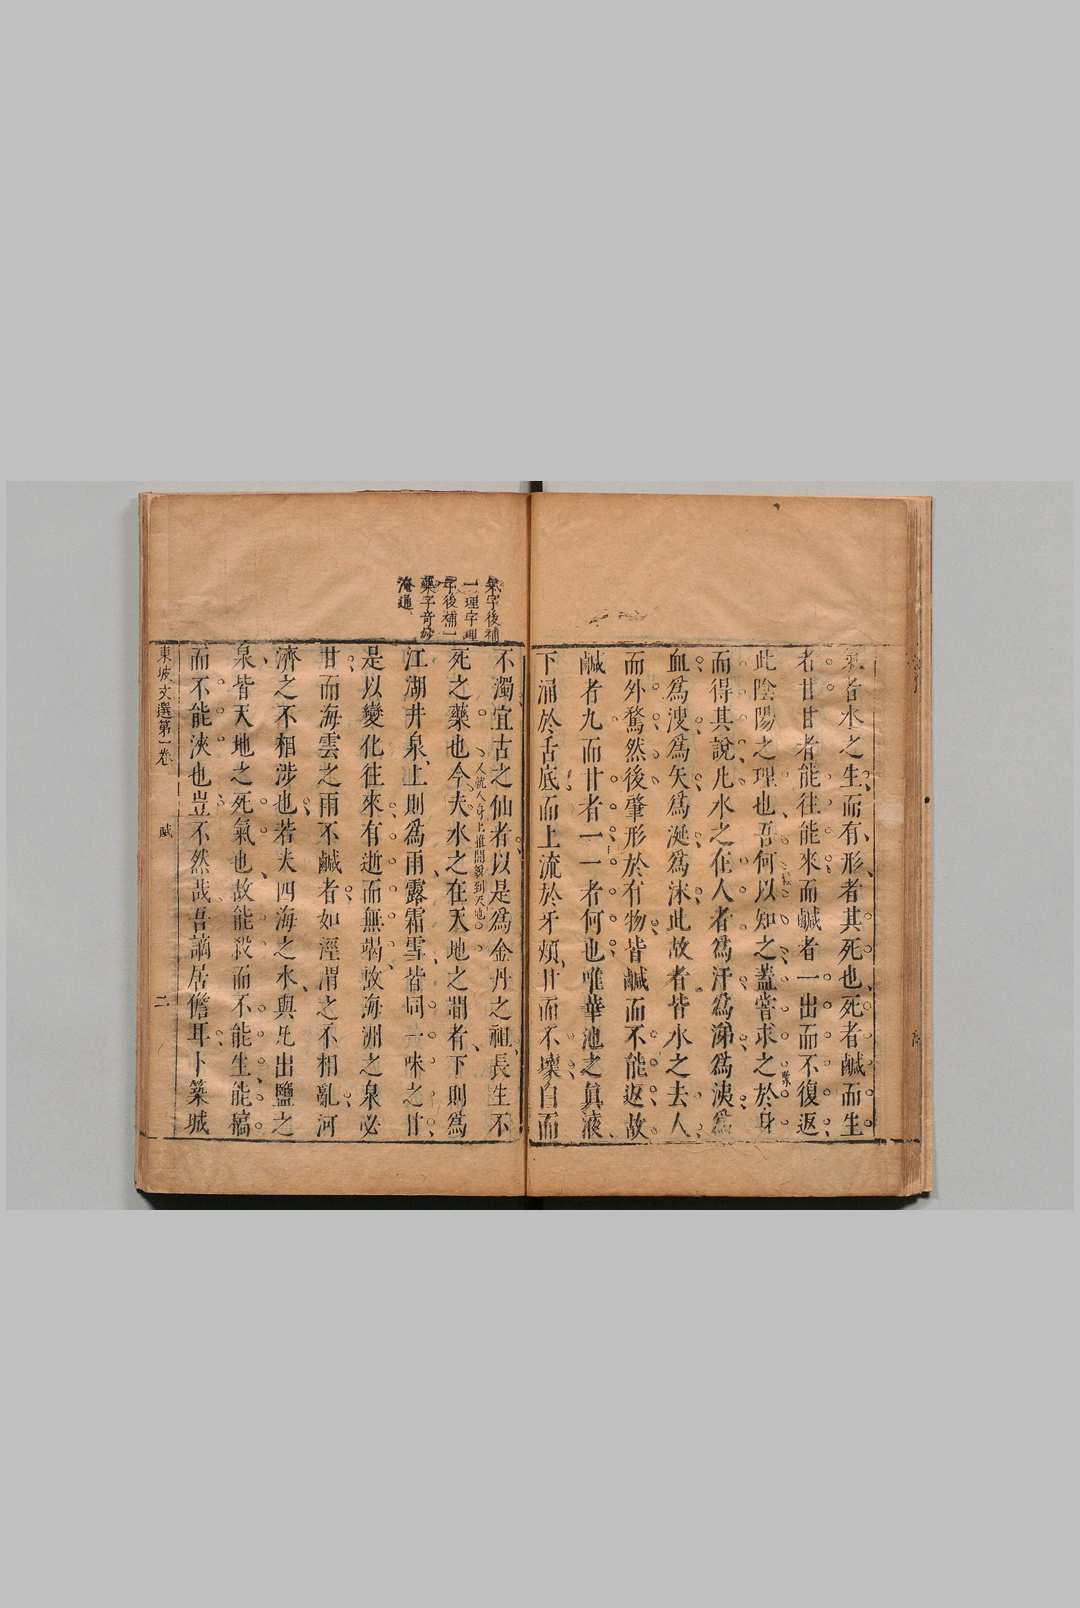 氣者水之生而有形者其死也死者鹹而生
者甘甘者能往能來而鹹者一出而不復返
此陰陽之理也吾何以知之蓋嘗求之於身
而得其說凡水之在人者爲汗爲涕爲洟爲
血爲溲爲矢爲涎爲沫此故者皆水之去人
而外騖然後肇形於有物皆鹹而不能返故
鹹者九而甘者一一者何也唯華池之眞液
下涌於舌底而上流於牙頰甘而不壞白而
氣字後補
一理字理
字後補一
藥字奇妙
海通
不濁宜古之仙者以是爲金丹之祖長生不
人就人身上推開說到天地
死之藥也今夫水之在天地之間者下則爲
江湖井泉上則爲雨露霜雪皆同一味之甘
是以變化往來有逝而無竭故海洲之泉必
甘而海雲之雨不鹹者如涇渭之不相亂河
濟之不相涉也若夫四海之水與凡出鹽之
泉皆天地之死氣也故能殺而不能生能槁
而不能浹也豈不然哉吾謫居儋耳卜築城
東坡文選第一卷 賦 二